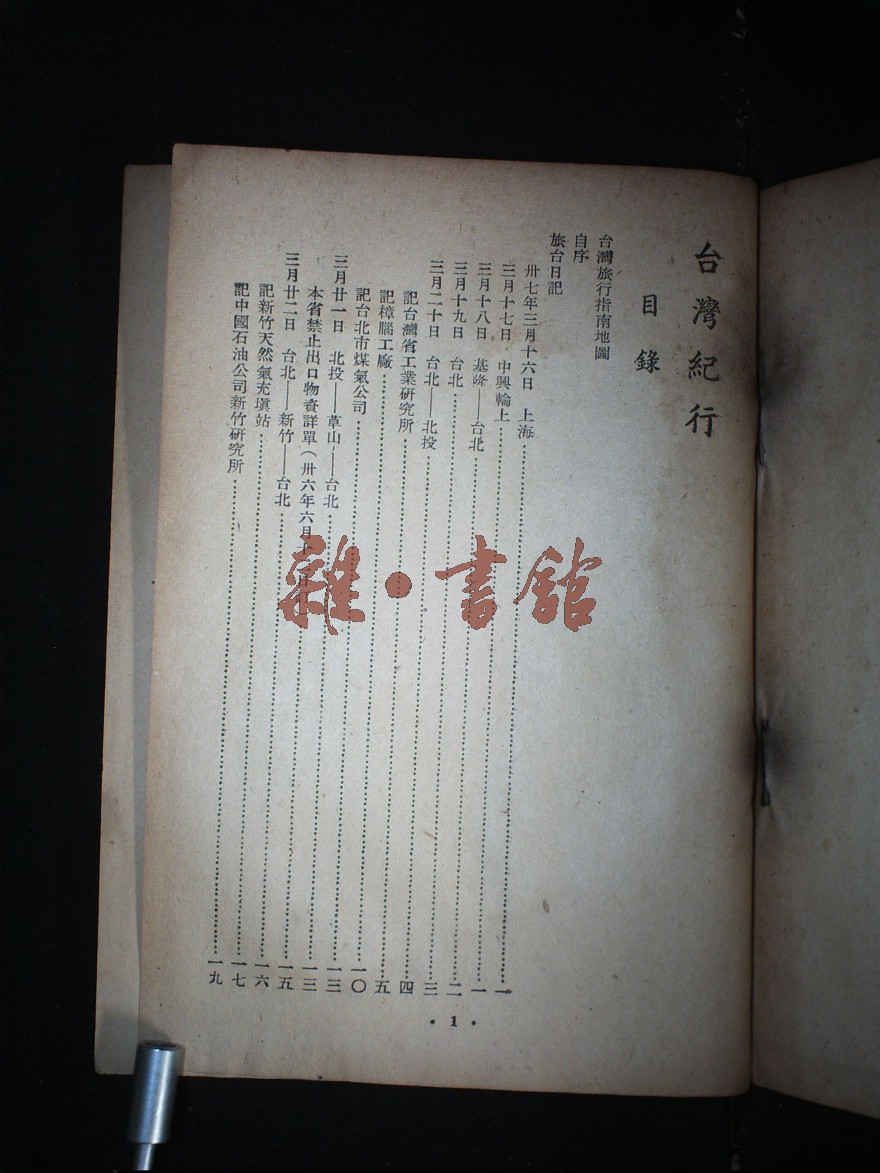 台灣紀行
目錄
台灣旅行指南地圖
自序
旅台日記
卅七年三月十六日 上海……一
三月十七日 中興輪上……一
三月十八日 基隆——台北……二
三月十九日 台北……三
三月二十日 台北——北投……四
記台灣省工業研究所……五
記樟腦工廠……一〇
記台北市煤氣公司……一三
三月廿一日 北投——草山——台北……一三
本省禁止出口物資詳單(卅六年六月……一五
三月廿二日 台北——新竹——台北……一六
記新竹天然氣充塡站……一七
記中國石油公司新竹研究所……一九
• 1 •
雜•書館